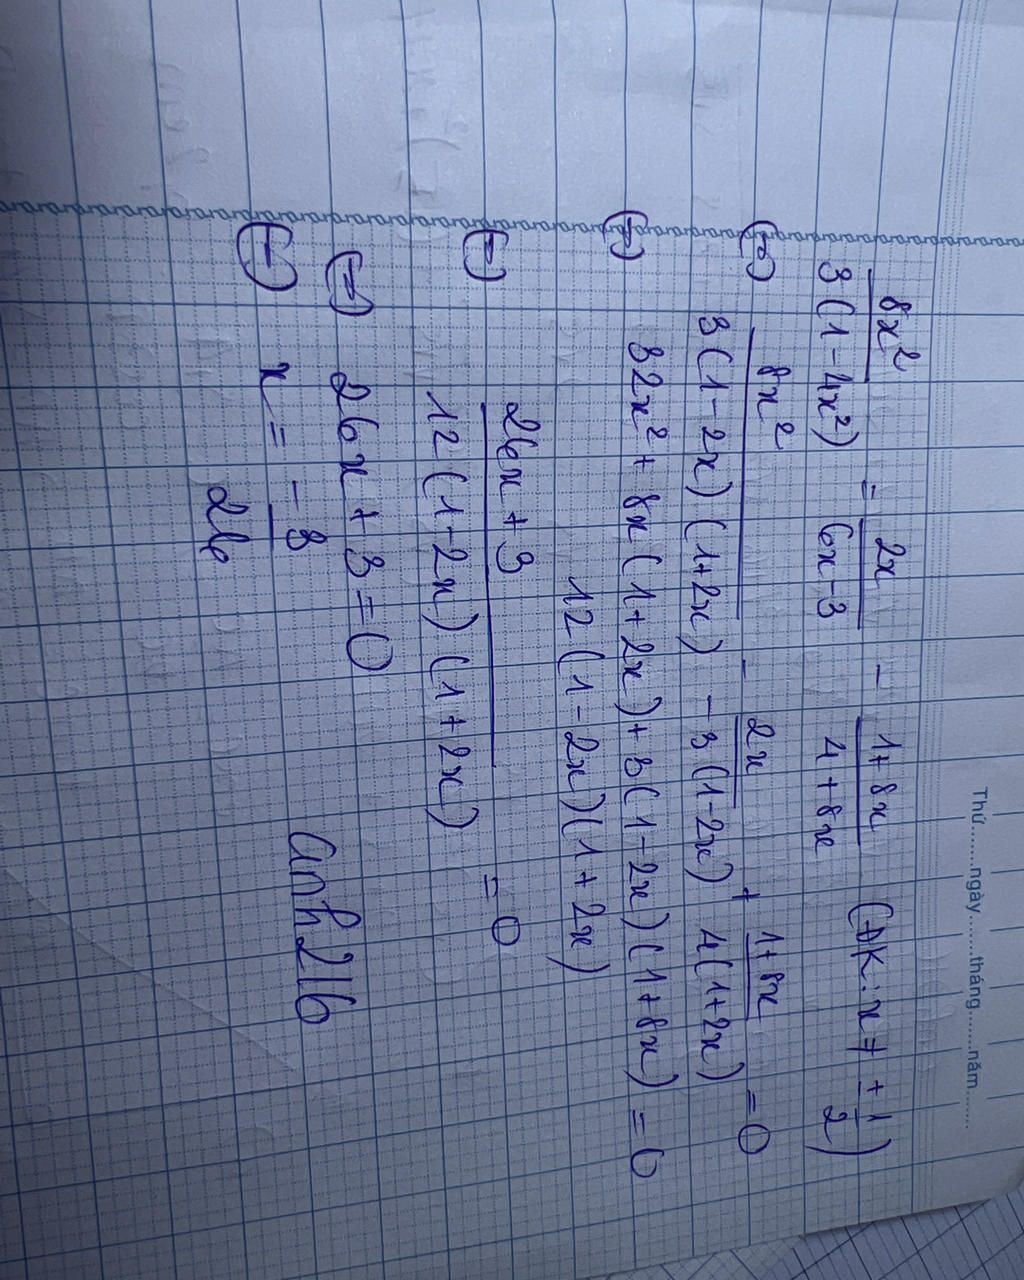 Thứ.......ngày.......tháng.......năm.......
8x² / 3(1-4x²) = 2x / 6x-3 - 1+8x / 4+8x (ĐK: x ≠ ± 1/2)
⇔ 8x² / 3(1-2x)(1+2x) - 2x / -3(1-2x) + 1+8x / 4(1+2x) = 0
⇔ 32x² + 8x(1+2x) + 3(1-2x)(1+8x) / 12(1-2x)(1+2x) = 0
⇔ 26x + 3 / 12(1-2x)(1+2x) = 0
⇔ 26x + 3 = 0
⇔ x = -3 / 26
anh216